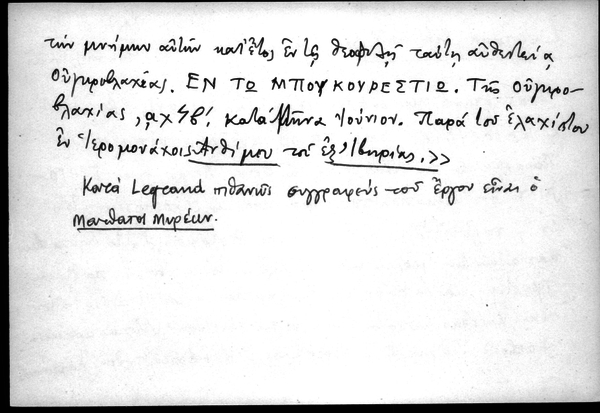 τὴν μνήμην αὐτῶν κατ' ἔτος ἐν τῇ θεοφιλῇ ταύτῃ αὐθεντείᾳ
Οὐγκροβλαχίας. ΕΝ ΤΩ ΜΠΟΥΚΟΥΡΕΣΤΙΩ. Τῆς Οὐγκρο-
βλαχίας, ͵αχϟβ! κατὰ Μῆνα Ἰούνιον. Παρὰ τοῦ ἐλαχίστου
ἐν Ἱερομονάχοις Ἀνθίμου τοῦ ἐξ Ἰβηρίας.>>
Κατὰ Legrand πιθανῶς συγγραφεὺς τοῦ ἔργου εἶναι ὁ
Μυρέων.